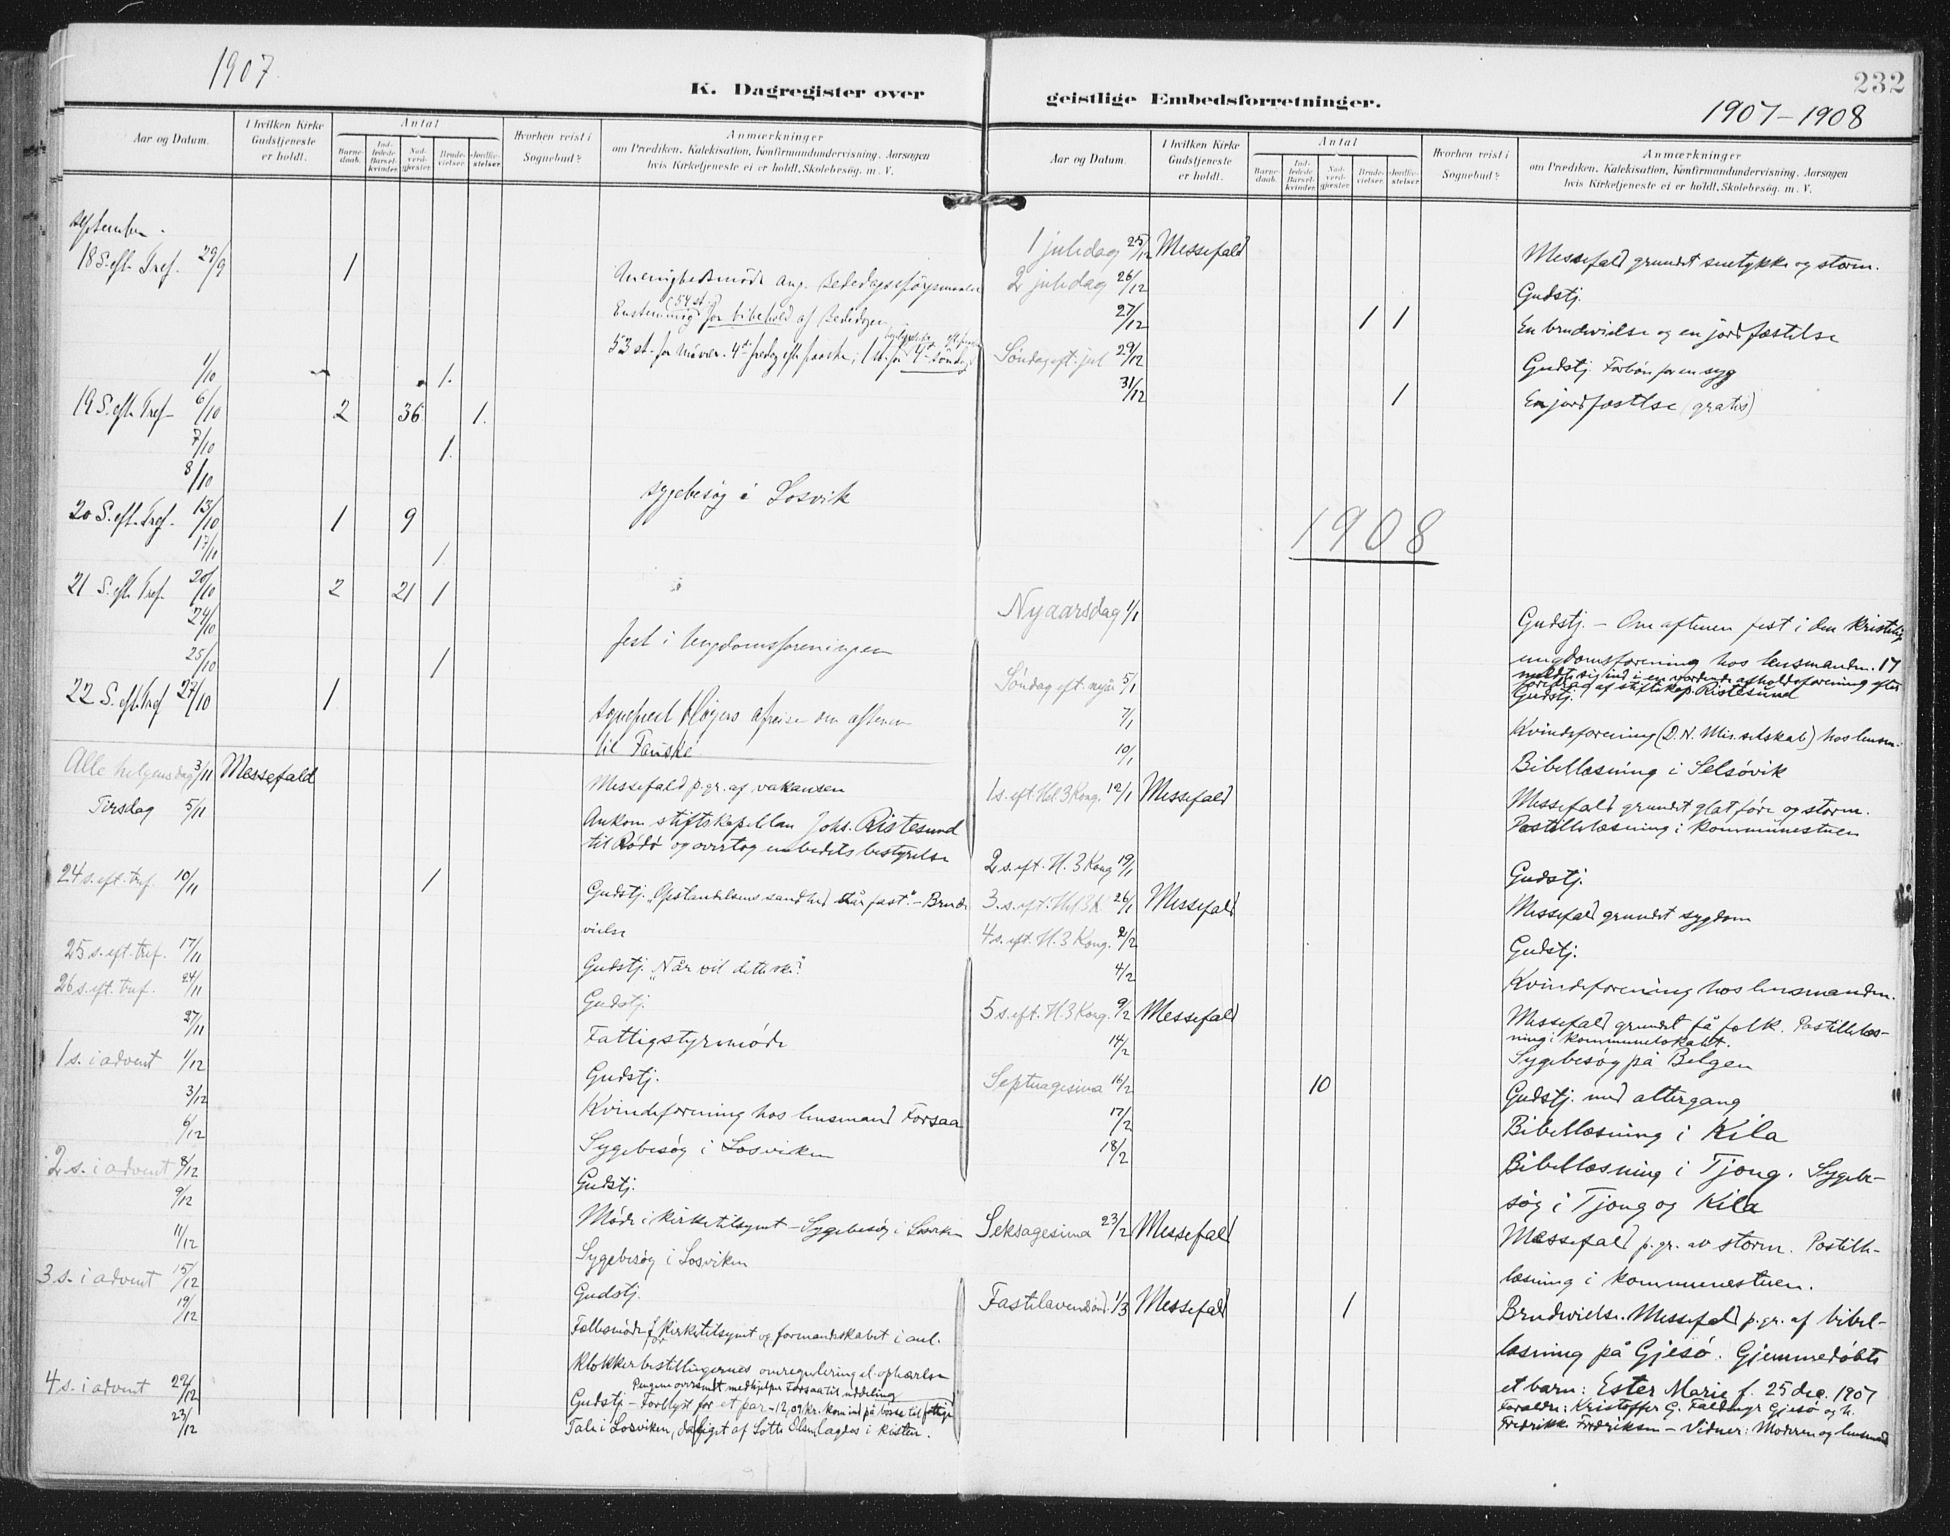 1907.
K. Dagregister over
Aar og Datum.
I hvilken Kirke Gudstjeneste er holdt.
Antal
Barne-daab.
Ind-ledede Barsel-kvinder.
Nad-verd-gjester.
Brude-vielser.
Jordfæ-stelser.
Hvorhen reist i Sognebud?
Anmærkninger
om Prædiken, Katekisation, Konfirmandundervisning, Aarsagen
hvis Kirketjeneste ei er holdt, Skolebesøg. m. V.
September.
18 S. eft. Tref. 29/9 1
Menighedsmøde ang. Bededagsspørgsmaalet
(54 st.)
Enstemmig for bibehold af Bededagen
53 st. for nuvær. 4de fredag efter paaske; 1 st. for 4de søndag
1/10 1.
19 S. eft. Tref. 6/10 2 36 1.
7/10 1.
8/10 sygebesøg i Sørvik
20 S. eft. Tref. 13/10 1 9
17/10 1
21 S. eft. Tref. 20/10 2 21 1
24/10 fest i Ungdomsforeningen
25/10 1
22 S. eft. Tref 27/10 1
sogneprest afreise om aftenen
til Fauske
Alle helgensdag 3/11 Messefald Messefald p.gr. af vakansen
Tirsdag 5/11 Ankom stiftskapellan Johs. Ristesund
til Rødø og overtog embedets bestyrelse
24 s. eft. tref. 10/11 1 Gudstj. "Opstandelsens sandhed står fast". - Brude-
vielse
25 s. eft. tref. 17/11 Gudstj. "Når vil dette ske?"
26 s. eft. tref. 24/11 Gudstj.
27/11 Fattigstyremøde
1 s. i advent 1/12 Gudstj.
3/12 Kvindeforening hos lensmand Forsaa
6/12 Sygebesøg i Sørviken
2 s. i advent 8/12 Gudstj.
9/12 Møde i kirketilsynet - Sygebesøg i Sørviken
11/12 Sygebesøg i Sørviken
3 s. i advent 15/12 Gudstj.
19/12 Fællesmøde for kirketilsynet og formandskabet i anl.
klokkerbestillingernes omregulering el. ophævelse
Pengene oversendt medhjelper Forsaa til uddeling
4 s. i advent 22/12 Gudstj - Forlyst for et par - 12,09 kr. kom ind på bøsse til fattige
23/12 Tale i Sørviken, da liget af Lotte Olsen lagdes i kisten.
232
geistlige Embedsforretninger.
1907-1908
Aar og Datum.
I hvilken Kirke Gudstjeneste er holdt.
Antal
Barne-daab.
Ind-ledede Barsel-kvinder.
Nad-verd-gjester.
Brude-vielser.
Jordfæ-stelser.
Hvorhen reist i Sognebud?
Anmærkninger
om Prædiken, Katekisation, Konfirmandundervisning, Aarsagen
hvis Kirketjeneste ei er holdt, Skolebesøg. m. V.
1 juledag 25/12 Messefald Messefald grundet snetykke og storm.
2 juledag 26/12 Gudstj.
27/12 1 1 En brudevielse og en jordfæstelse
Søndag eft. jul 29/12 Gudstj. Forbøn for en syg
31/12 1 En jordfæstelse (gratis)
1908
Nyaarsdag 1/1 Gudstj. - Om aftenen fest i den kristelige
ungdomsforening hos lensmanden. 17
meldte sig ind i en vordende afholdsforening efter
foredrag af stiftskap. Ristesund
Søndag eft. nyår 5/1 Gudstj.
7/1 Kvindeforening (D.N. Mis.selskab) hos lensm.
10/1 Bibellæsning i Selsøvik
1 s. eft. Hel 3 Kong. 12/1 Messefald Messefald grundet glat føre og storm.
Postillelæsning i kommunestuen
2 s. eft. H. 3 Kong 19/1 Gudstj.
3. s. eft. Hel 3 K 26/1 Messefald Messefald grundet sygdom
4 s. eft. H. 3 Kong. 2/2 Gudstj.
4/2 Kvindeforening hos lensmanden.
5 s. eft. H. 3 Kong. 9/2 Messefald Messefald grundet få folk. Postillelæs-
ning i kommunelokalet.
14/2 Sygebesøg på Bolgen
Septuagesima 16/2 10 Gudstj. med altergang
17/2 Bibellæsning i Kila
18/2 Bibellæsning i Tjong. Sygebe-
søg i Tjong og Kila
Seksagesima 23/2 Messefald Messefald p.gr. av storm. Postille-
læsning i kommunestuen.
Fastelavensønd. 1/3 Messefald 1 Brudevielse. Messefald p.gr. af bibel-
læsning på Gjesø. Gjemmedøbte
et barn: Ester Marie f. 25 dec. 1907
Forældre: Kristoffer G. Faldmyr Gjesø og h.
Fredrikke Fredriksen - Vidner: Moderen og lensmand